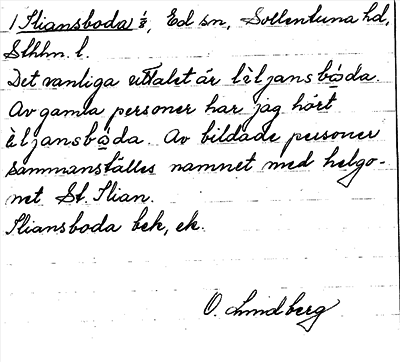 1 Iliansboda ⅔, Ed sn, Sollentuna hd,
Sthlm. l.
Det vanliga uttalet är lèljansbo̲da.
Av gamla personer har jag hört
èljansbo̲da. Av bildade personer
sammanställes namnet med helgo-
net St. Ilian.
Iliansboda bek, ek.
O. Lundberg